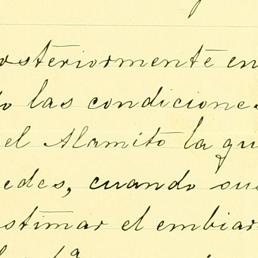 osteriormente en
o las condicione
el Alamito la qu
edes, cuando su
stimar el embiar